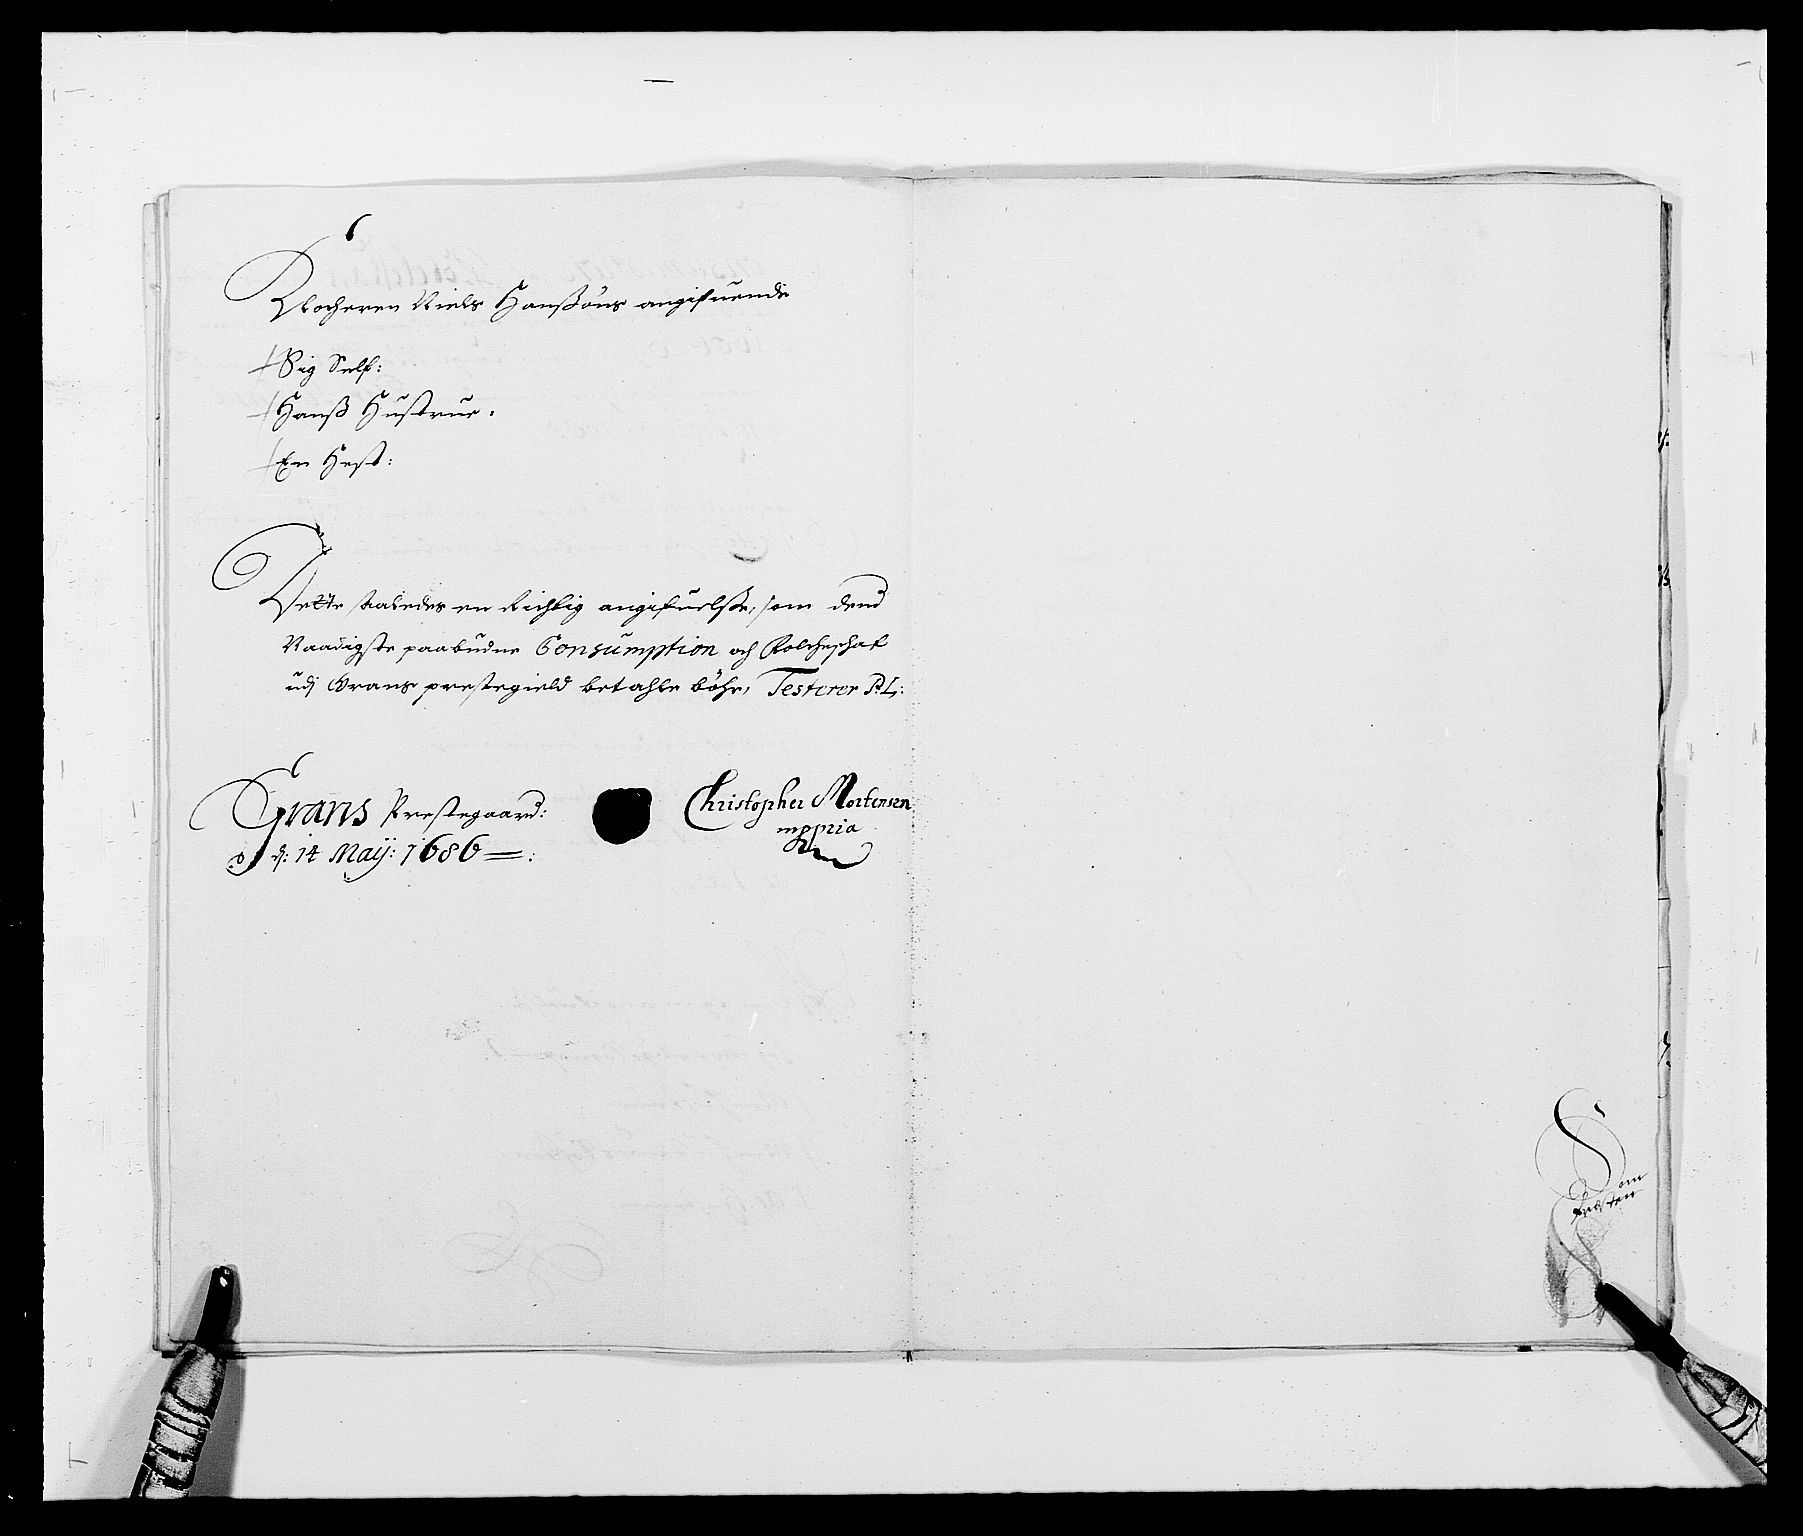 Klocheren Niels Hanßøns angifuende
Sig Self:
Hanß Hustrue.
En Hest:
Dette saaledes en Richtig angifuelße, som dend
Naadigste paabudne Consumption och Folcheschat
udj Grans prestegield betahle bőhr, Testerer P: L:
Grans Prestegaard:
d: 14 Maij: 1686 =:
Christopher Mortensen
mppria
Som